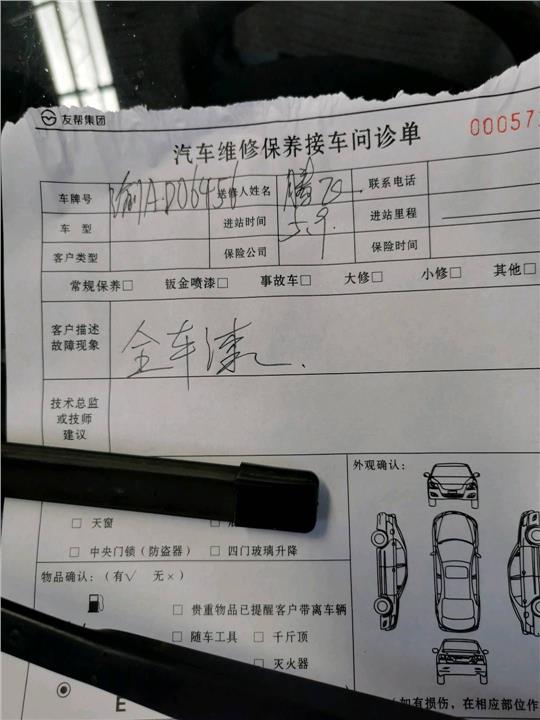 友帮集团
汽车维修保养接车问诊单
000057
车牌号 渝A·D06456 送修人姓名 腾飞 联系电话
车 型 进站时间 5.9. 进站里程
客户类型 保险公司 保险时间
常规保养□ 钣金喷漆□ 事故车□ 大修□ 小修□ 其他□
客户描述
故障现象
全车漆.
技术总监
或技师
建议
外观确认：
□ 天窗
□ 中央门锁（防盗器） □ 四门玻璃升降
物品确认：（有√ 无×）
□ 贵重物品已提醒客户带离车辆
□ 随车工具 □ 千斤顶
□ 灭火器
E
如有损伤，在相应部位作